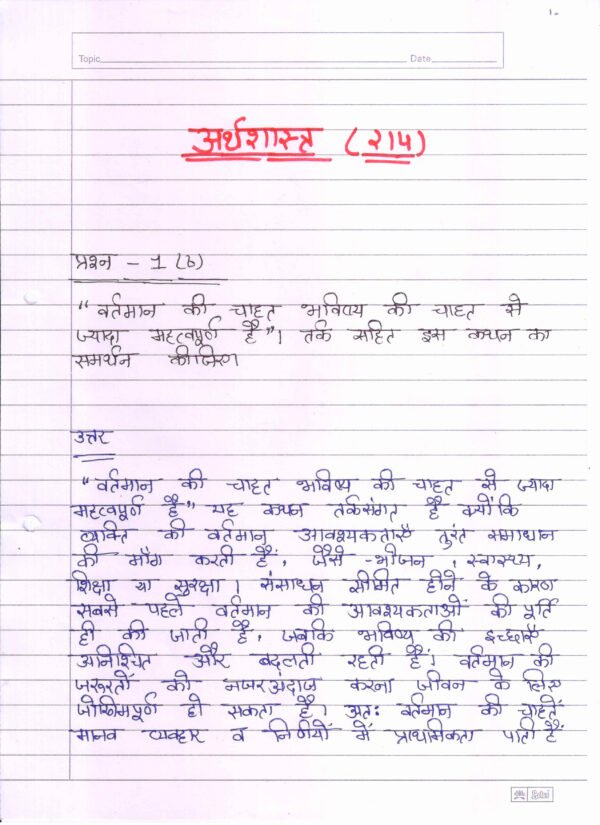 1.
Topic Date
अर्थशास्त्र (214)
प्रश्न - 1 (b)
“वर्तमान की चाहत भविष्य की चाहत से
ज्यादा महत्वपूर्ण है”। तर्क सहित इस कथन का
समर्थन कीजिए।
उत्तर
“वर्तमान की चाहत भविष्य की चाहत से ज्यादा
महत्वपूर्ण है” यह कथन तर्कसंगत है क्योंकि
व्यक्ति की वर्तमान आवश्यकताएँ तुरंत समाधान
की माँग करती हैं, जैसे -भोजन, स्वास्थ्य,
शिक्षा या सुरक्षा। संसाधन सीमित होने के कारण
सबसे पहले वर्तमान की आवश्यकताओं की पूर्ति
ही की जाती है, जबकि भविष्य की इच्छाएँ
अनिश्चित और बदलती रहती हैं। वर्तमान की
जरूरतों को नजरअंदाज करना जीवन के लिए
जोखिमपूर्ण हो सकता है। अतः वर्तमान की चाहतें
मानव व्यवहार व निर्णयों में प्राथमिकता पाती हैं